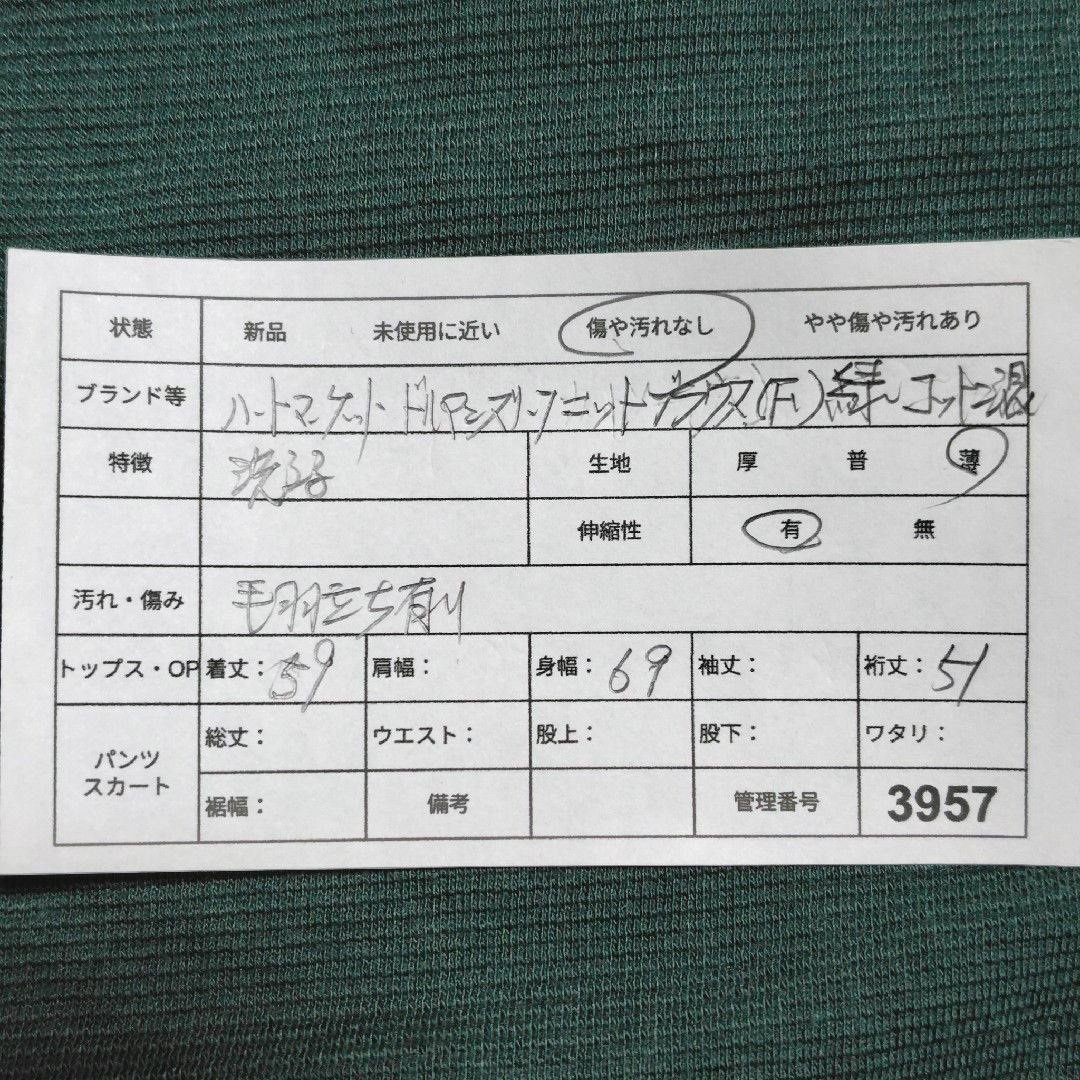 状態 新品 未使用に近い 傷や汚れなし やや傷や汚れあり
ブランド等 ハートマーケット ドルマンスリーブニットブラウス(F) 緑 コットン混
特徴 洗る 生地 厚 普 薄
伸縮性 有 無
汚れ・傷み 毛羽立ち有り
トップス・OP 着丈:59 肩幅: 身幅:69 袖丈: 裄丈:51
パンツ スカート 総丈: ウエスト: 股上: 股下: ワタリ:
裾幅: 備考 管理番号 3957